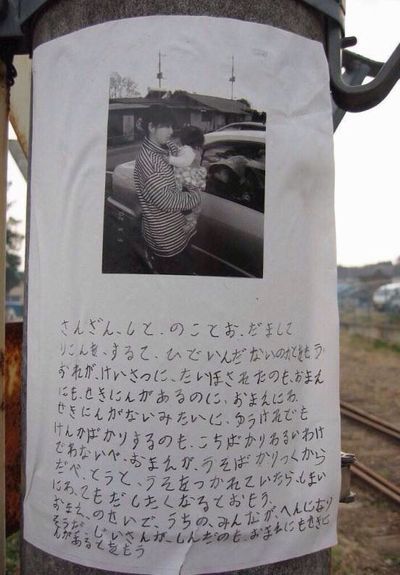 さんざん、しと、のことお、だまして
りこんを、するて、ひでいんだないのかとをもう
おれが、けいさつに、たいほされたのも、おまえ
にも、せきにんがあるのに、おまえにわ、
せきにんがないみたいに、ゆうけれども
けんかばかりするのも、こちばかりわるいわけ
でわないべ、おまえが、うそばかりつくから
だべ、とうと、うそをつかれていたら、しまい
にわ、てもだしたくなるとおもう、
おまえ、のせいで、うちの、みんなが、へんになり
そうだ、じいさんが、しんだのも、おまえにもせきに
んがあるとをもう